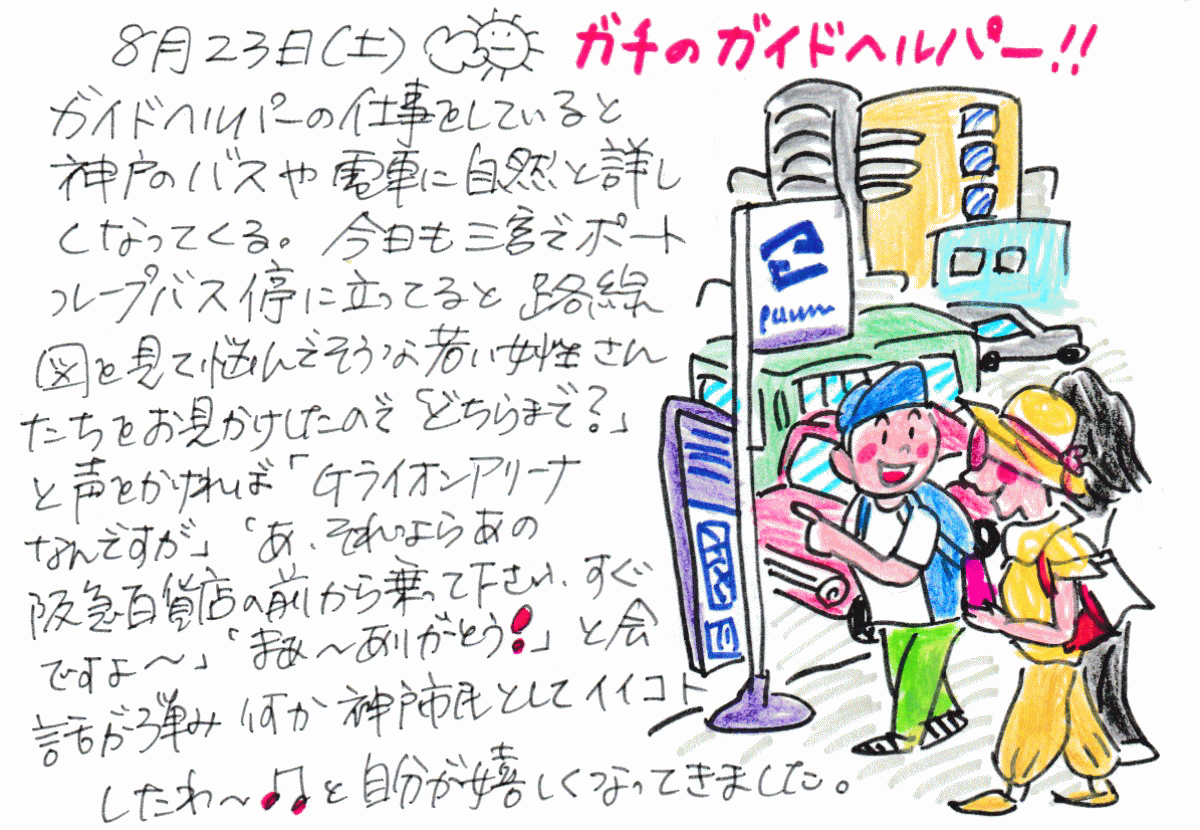 8月23日(土)
ガチのガイドヘルパー!!
ガイドヘルパーの仕事をしていると
神戸のバスや電車に自然と詳し
くなってくる。今日も三宮でポート
ループバス停に立ってると路線
図を見て悩んでそうな若い女性さん
たちをお見かけしたので「どちらまで?」
と声をかければ「Gライオンアリーナ
なんですが」「あ、それならあの
阪急百貨店の前から乗って下さい、すぐ
ですよ〜」「まあ〜ありがとう!」と会
話が弾み何か神戸市民としてイイコト
したわ〜♫と自分が嬉しくなってきました。